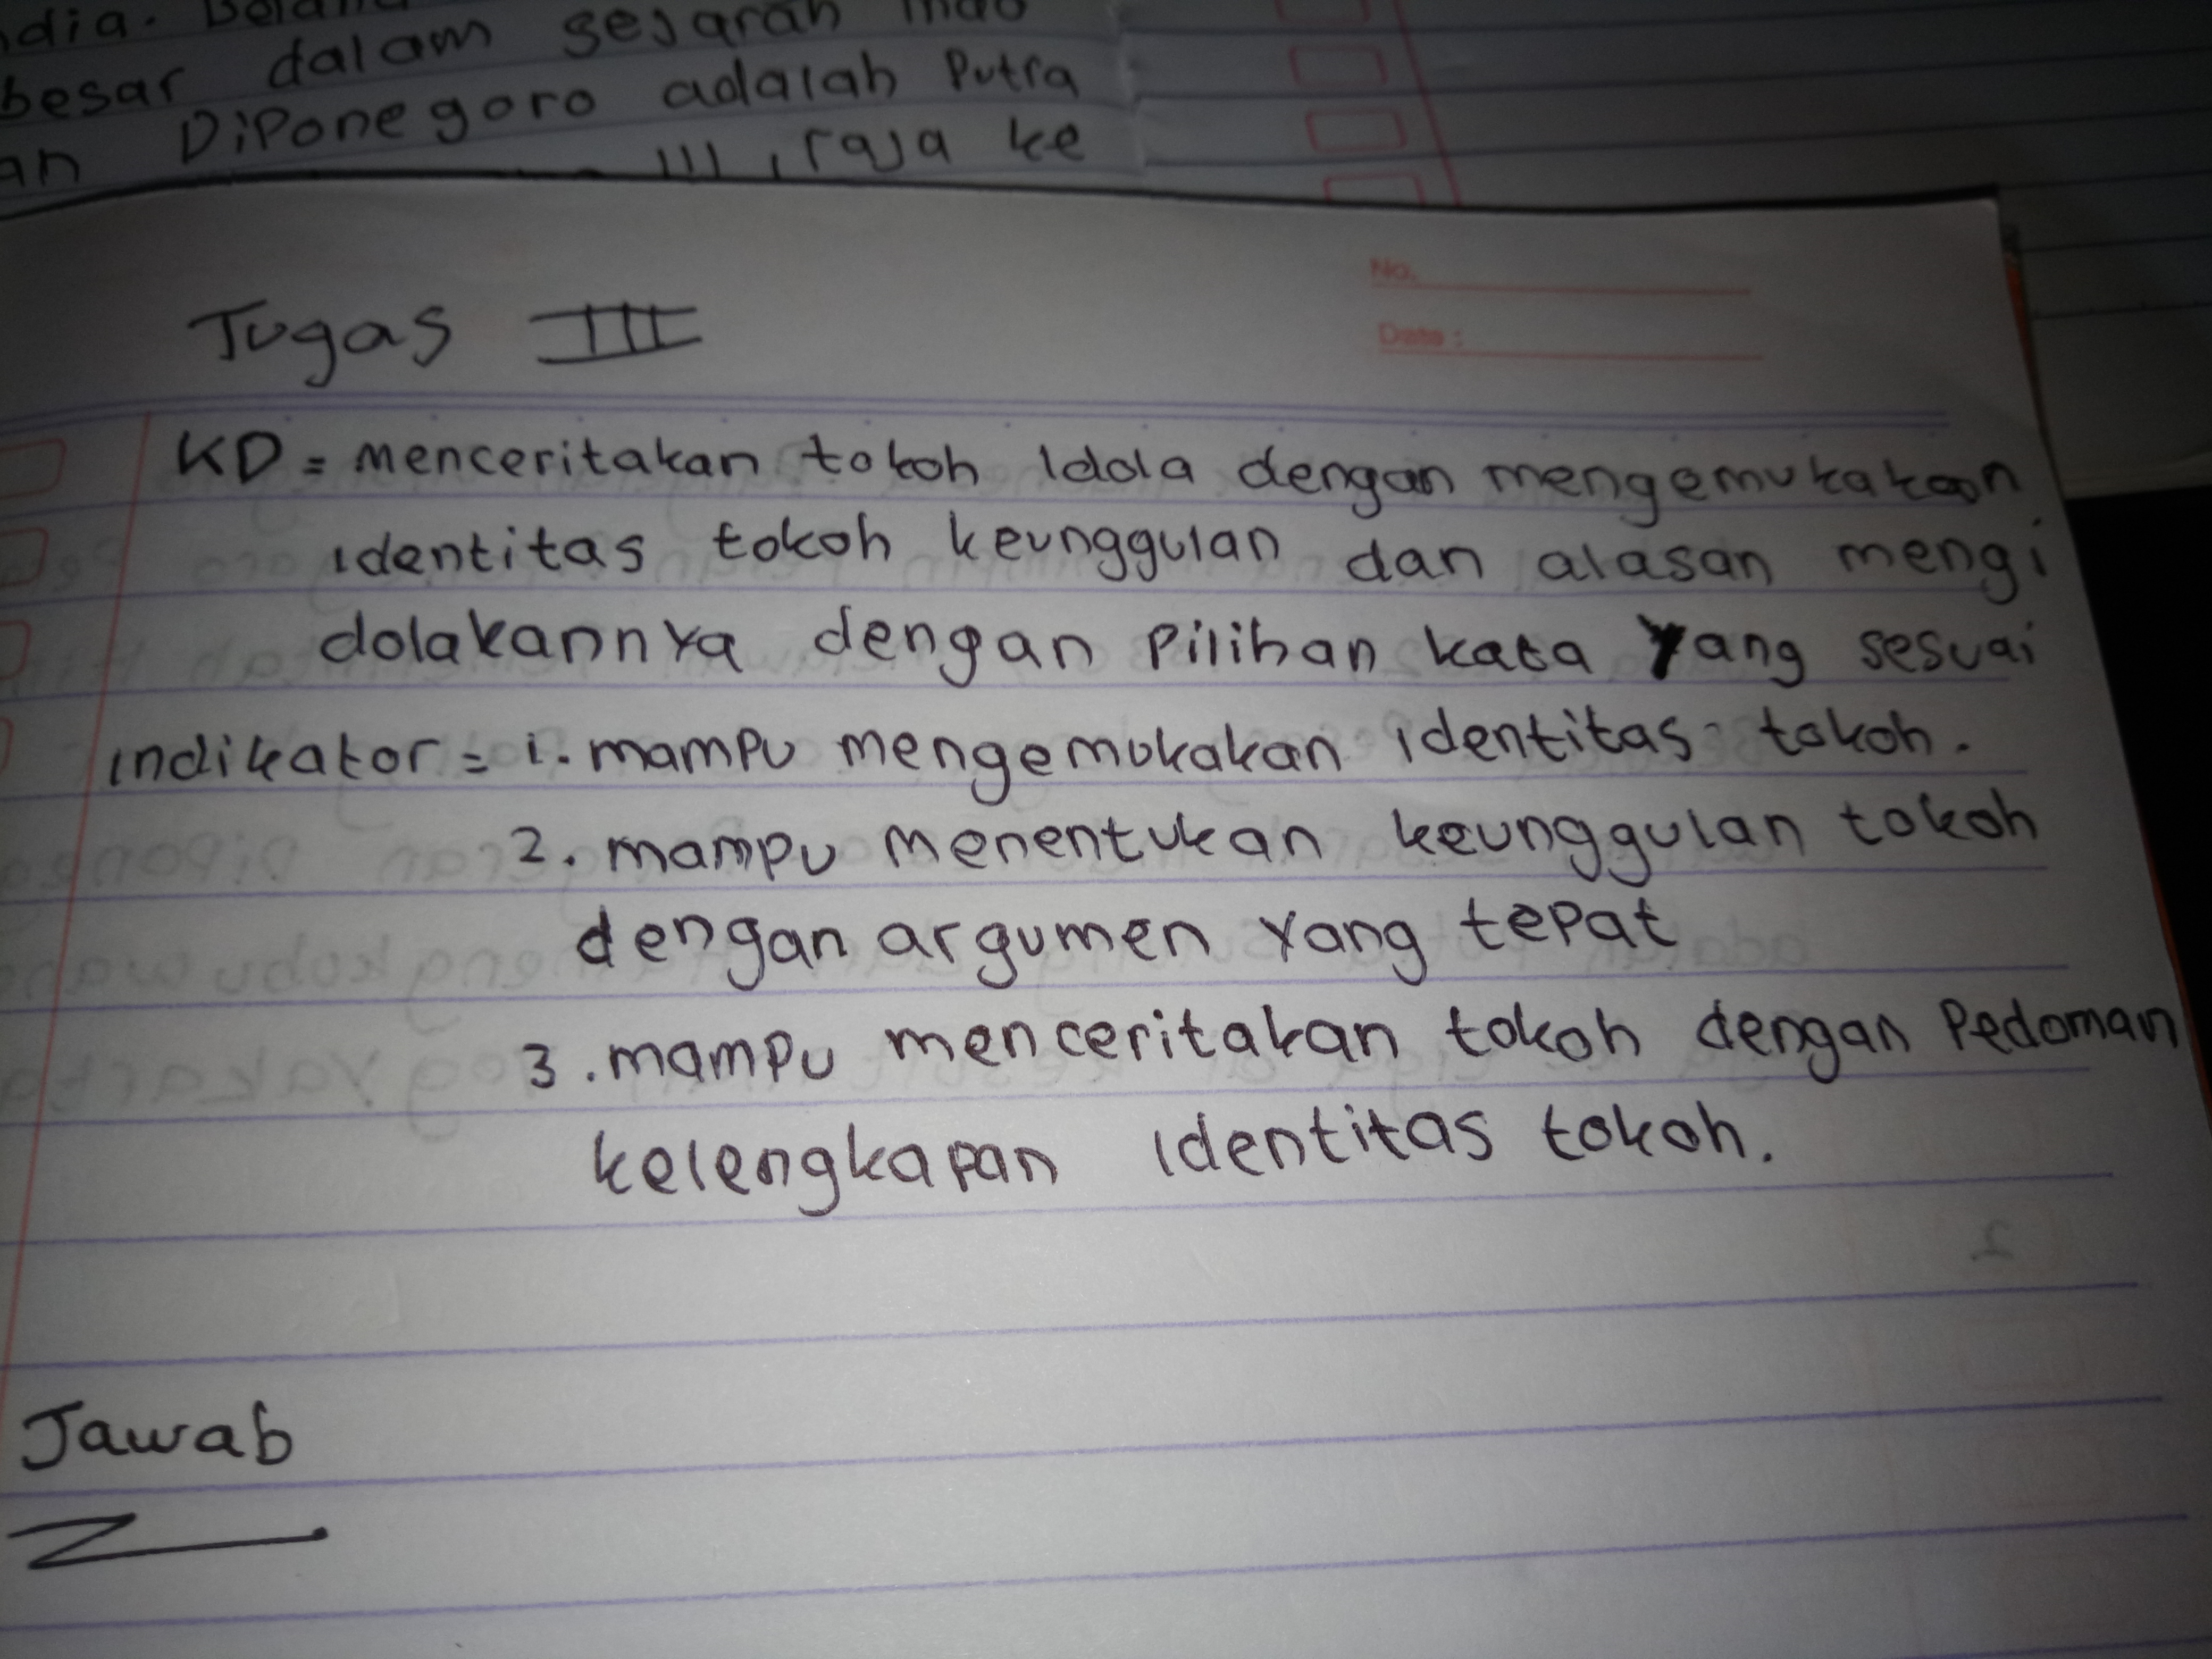 besar dalam sejarah Indo
an Diponegoro adalah Putra
III, raja ke
No.
Date :
Tugas III
KD = menceritakan tokoh Idola dengan mengemukakan
identitas tokoh keunggulan dan alasan mengi
dolakannya dengan Pilihan kata yang sesuai
indikator = 1. mampu mengemukakan identitas tokoh.
2. mampu menentukan keunggulan tokoh
dengan argumen yang tepat
3. mampu menceritakan tokoh dengan Pedoman
kelengkapan identitas tokoh.
Jawab